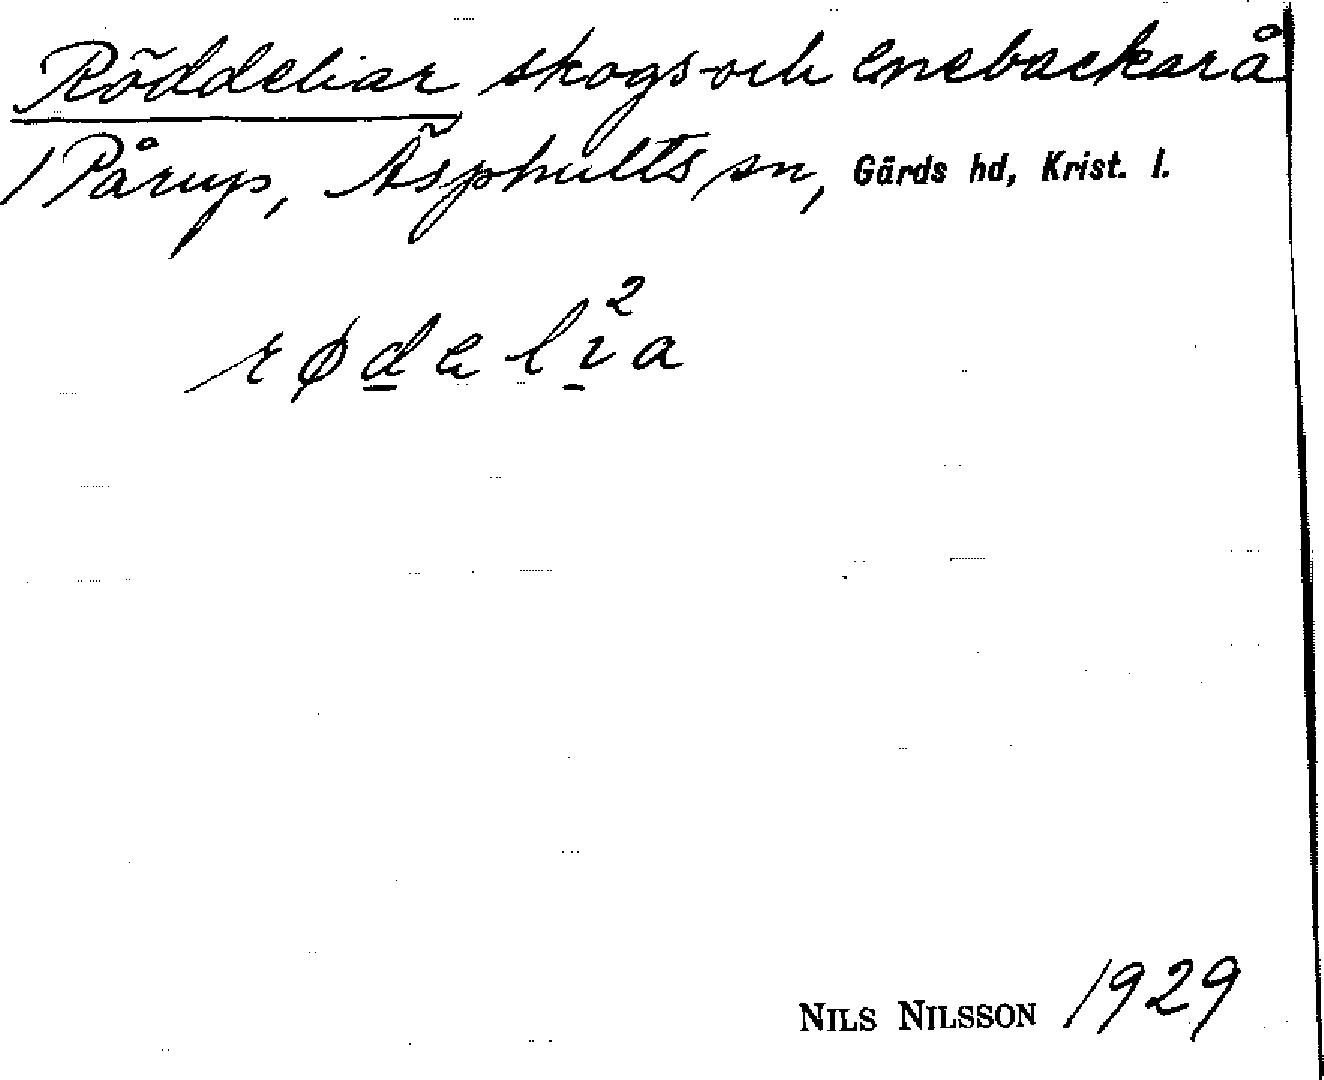 Röddeliar skogs- och enebackar å
1 Pårup, Äsphults sn, Gärds hd, Krist. l.
rødeli²a
NILS NILSSON 1929